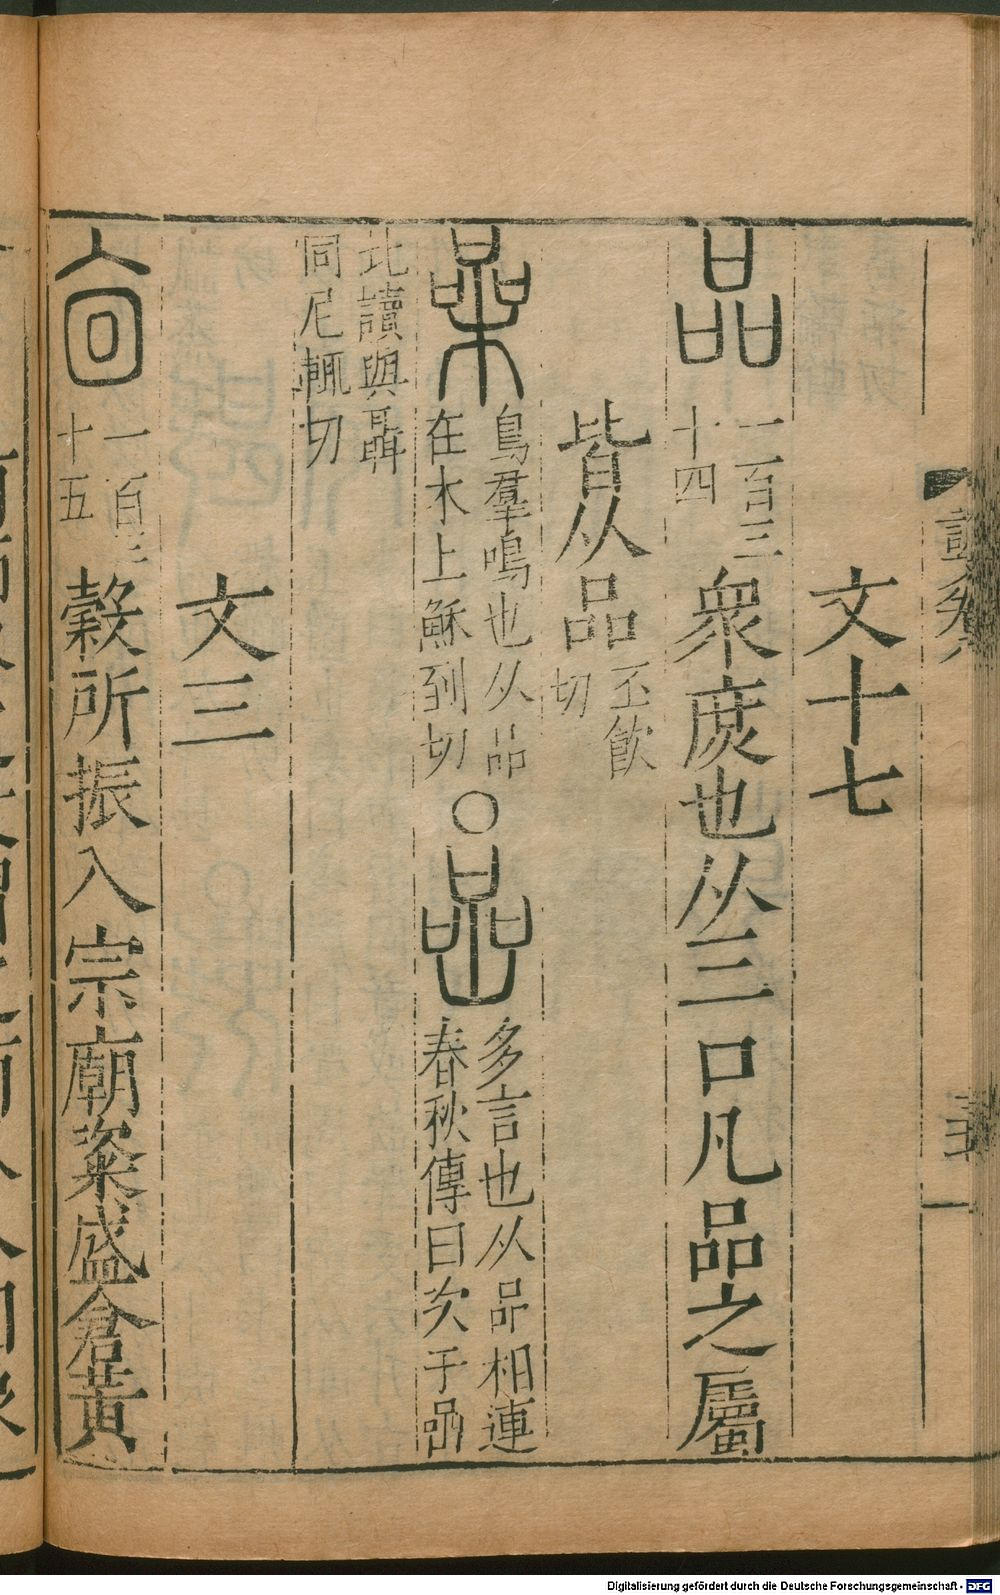 文十七
品 一百三十四 衆庻也从三口凡品之屬
皆从品 丕飲切
喿 鳥羣鳴也从品在木上穌到切 〇 嵒 多言也从品相連春秋傳曰次于嵒
北讀與聶同尼輒切
文三
㐭 一百三十五 穀所振入宗廟粢盛倉黃
Digitalisierung gefördert durch die Deutsche Forschungsgemeinschaft - DFG